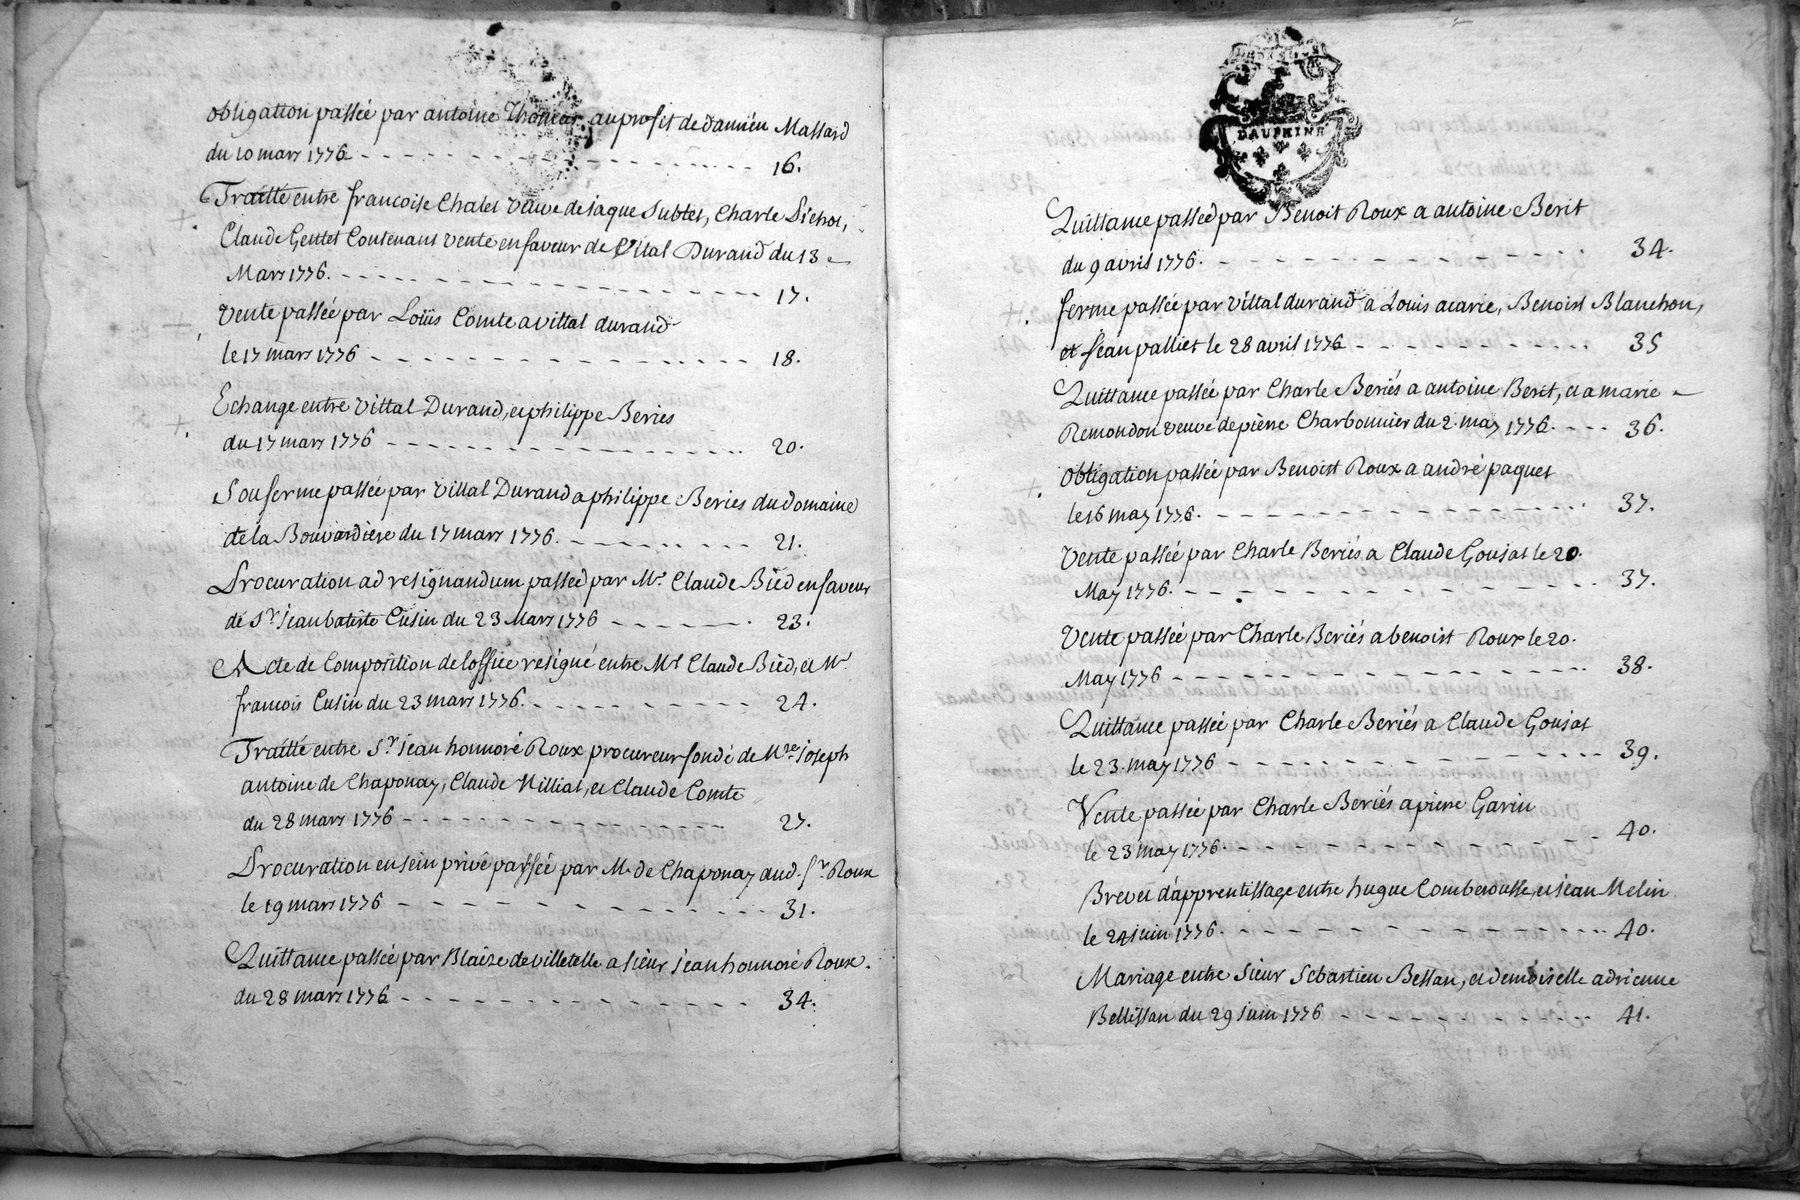 obligation passée par antoine Thomas au profit de damien Massard
du 10 mars 1776 16.
Traitté entre francoise Chalet veuve de jaque Sublet, Charle Pichot,
Claude Gentet Contenant vente en faveur de Vital Durand du 13
Mars 1776. 17.
Vente passée par Loüis Comte a vittal durand
le 17 mars 1776 18.
Echange entre Vittal Durand, et philippe Beries
du 17 mars 1776 20.
Sousferme passée par Vittal Durand a philippe Beries du domaine
de la Bouvardiere du 17 mars 1776. 21.
Procuration ad resignandum passée par Mr. Claude Bied en faveur
de Sr. jean batiste Cusin du 23 Mars 1776 23.
Acte de Composition de loffice resigné entre Mr Claude Bied, et Mr.
francois Cusin du 23 mars 1776. 24.
Traitté entre Sr. jean honnoré Roux procureur fondé de Mre. joseph
antoine de Chaponay, Claude Milliat, et Claude Comte
du 28 mars 1776 27.
Procuration en sein privé passée par M. de Chaponay aud. Sr. Roux
le 19 mars 1776 31.
Quittance passée par Blaize de villetelle a sieur jean honnoré Roux.
du 28 mars 1776 34.
DAUPHINÉ
Quittance passée par Benoit Roux a antoine Berit
du 9 avril 1776. 34.
ferme passée par Vittal durand a Louis acarie, Benoist Blanchon,
et jean palliet le 28 avril 1776 35
Quittance passée par Charle Beriés a antoine Berit, et a marie
Remondon veuve de pierre Charbonnier du 2. may 1776. 36.
obligation passée par Benoist Roux a andré paquet
le 16 may 1776. 37.
Vente passée par Charle Beriés a Claude Goujat le 20.
May 1776. 37.
Vente passée par Charle Beriés a benoist Roux le 20.
May 1776 38.
Quittance passée par Charle Beriés a Claude Goujat
le 23. may 1776 39.
Vente passée par Charle Beriés a pierre Garin
le 23 may 1776. 40.
Brevet d'apprentissage entre hugue Comberousse, et jean Melin
le 24 juin 1776. 40.
Mariage entre Sieur Sebastien Bessan, et demoiselle adrienne
Bellissan du 29 juin 1776 41.